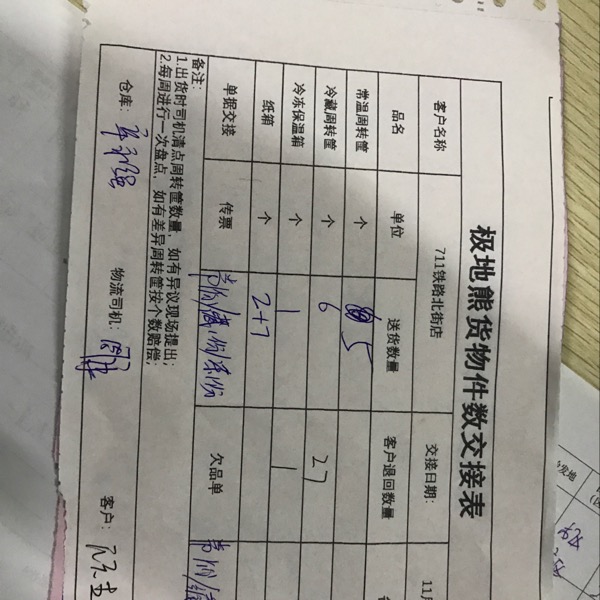 极地熊货物件数交接表
客户名称 711铁路北街店 交接日期： 11
品名 单位 送货数量 客户退回数量
常温周转筐 个 5
冷藏周转筐 个 6 27
冷冻保温箱 个 1 1
纸箱 个 2+7
单据交接 传票 欠品单
备注：
1.出货时司机清点周转筐数量，如有异议现场提出；
2.每周进行一次盘点，如有差异周转筐按个数赔偿；
仓库： 物流司机： 客户：